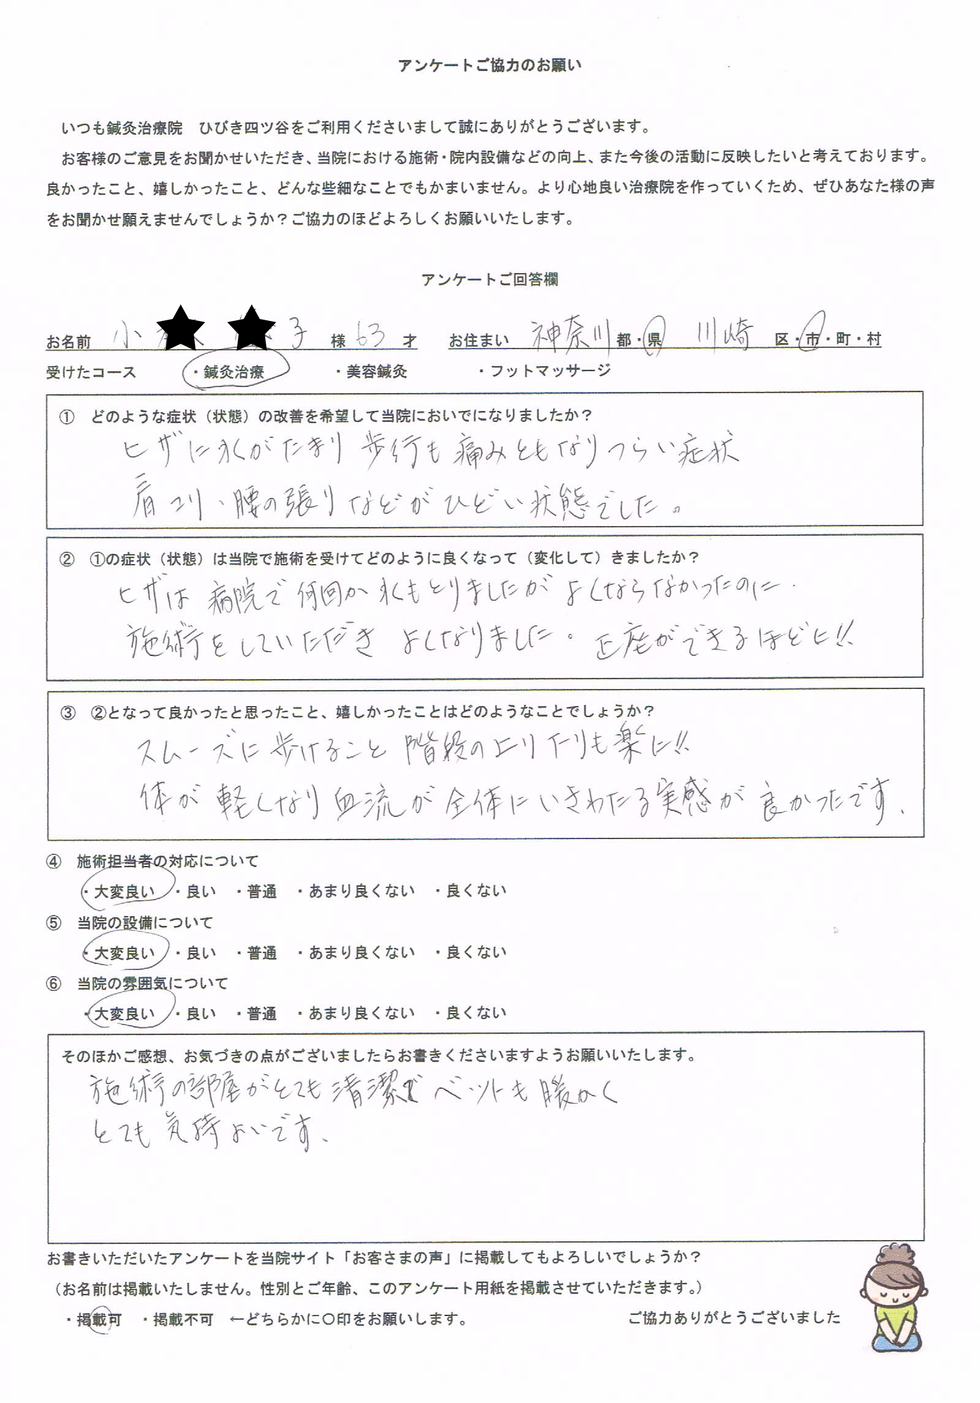 アンケートご協力のお願い
いつも鍼灸治療院　ひびき四ツ谷をご利用くださいまして誠にありがとうございます。
お客様のご意見をお聞かせいただき、当院における施術・院内設備などの向上、また今後の活動に反映したいと考えております。
良かったこと、嬉しかったこと、どんな些細なことでもかまいません。より心地良い治療院を作っていくため、ぜひあなた様の声
をお聞かせ願えませんでしょうか？ご協力のほどよろしくお願いいたします。
アンケートご回答欄
お名前　小　子　様　63　才　お住まい　神奈川　都・県　川崎　区・市・町・村
受けたコース　・鍼灸治療　・美容鍼灸　・フットマッサージ
①　どのような症状（状態）の改善を希望して当院においでになりましたか？
ヒザに水がたまり 歩行も痛みともなりつらい症状
肩コリ、腰の張りなどがひどい状態でした。
②　①の症状（状態）は当院で施術を受けてどのように良くなって（変化して）きましたか？
ヒザは 病院で何回か水もとりましたが よくならなかったのに、
施術をしていただき よくなりました。 正座ができるほどに!!
③　②となって良かったと思ったこと、嬉しかったことはどのようなことでしょうか？
スムーズに歩けること 階段の上り下りも楽に!!
体が軽くなり血流が全体にいきわたる実感が良かったです、
④　施術担当者の対応について
・大変良い　・良い　・普通　・あまり良くない　・良くない
⑤　当院の設備について
・大変良い　・良い　・普通　・あまり良くない　・良くない
⑥　当院の雰囲気について
・大変良い　・良い　・普通　・あまり良くない　・良くない
そのほかご感想、お気づきの点がございましたらお書きくださいますようお願いいたします。
施術の部屋がとても清潔で ベットも暖かく
とても気持よいです、
お書きいただいたアンケートを当院サイト「お客さまの声」に掲載してもよろしいでしょうか？
（お名前は掲載いたしません。性別とご年齢、このアンケート用紙を掲載させていただきます。）
・掲載可　・掲載不可　←どちらかに〇印をお願いします。　ご協力ありがとうございました